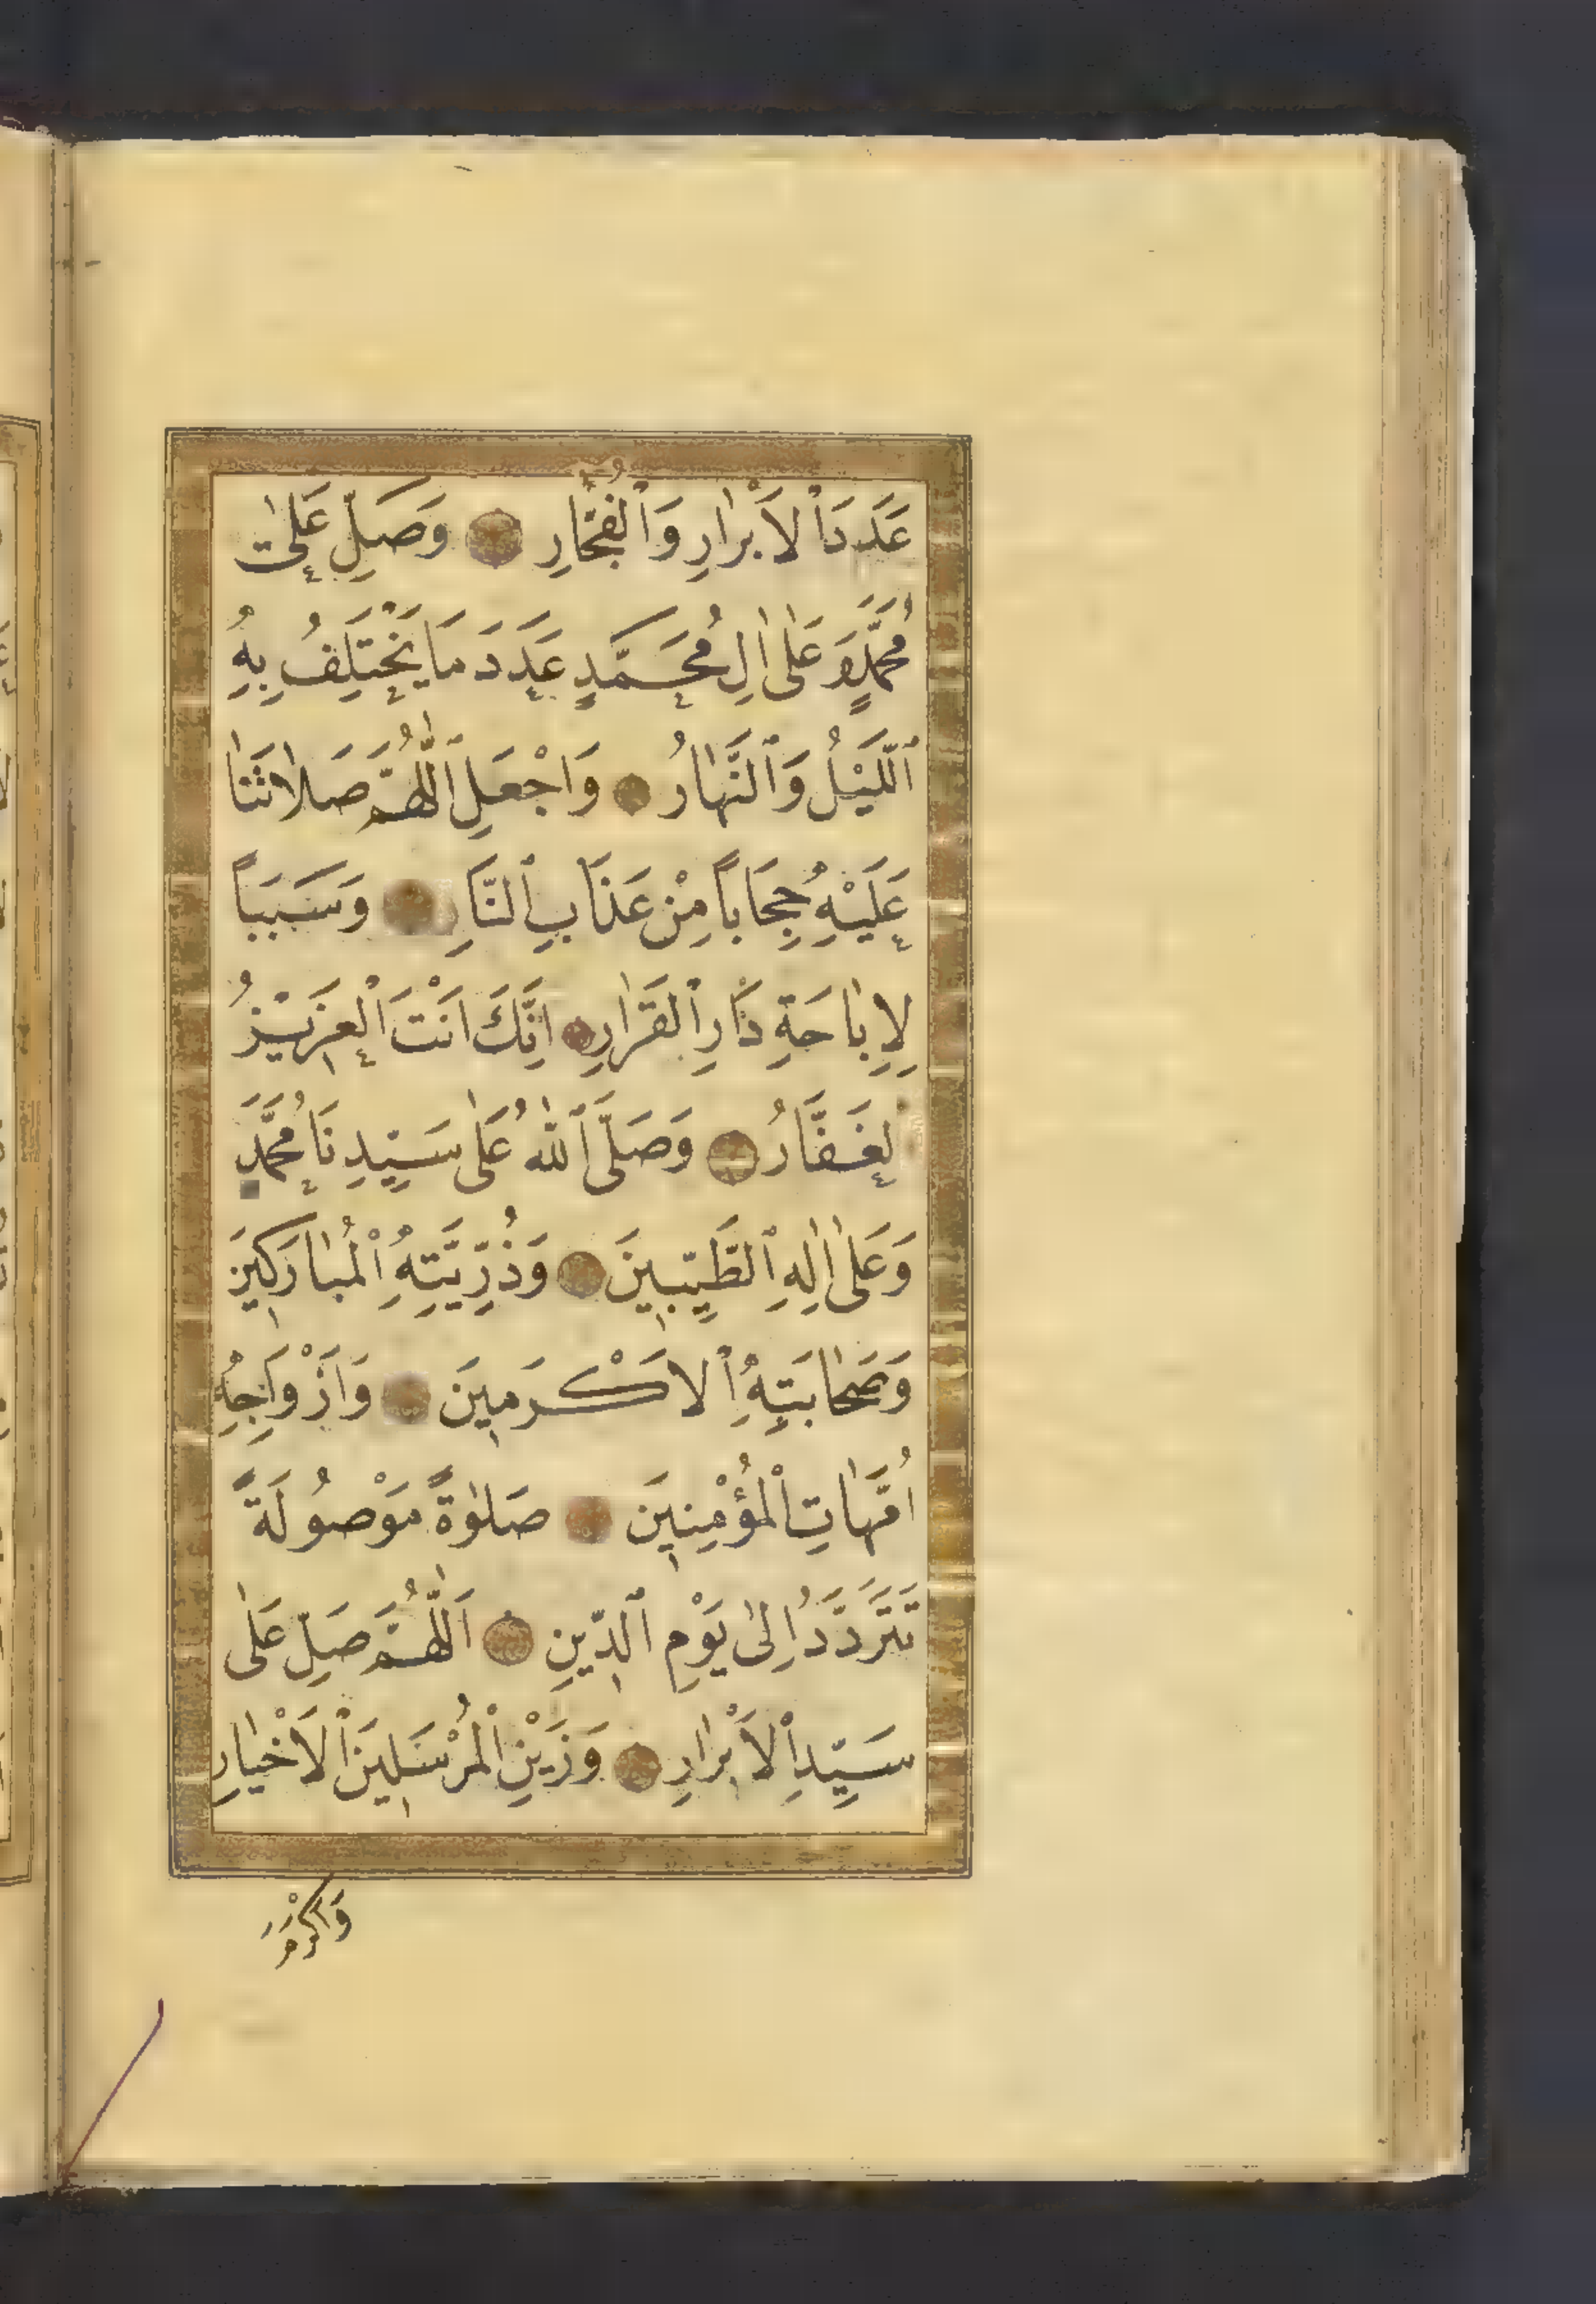 عَدَدَ ٱلْاَبْرَارِ وَٱلْفُجَّارِ وَصَلِّ عَلٰى
مُحَمَّدٍ وَعَلٰى اٰلِ مُحَمَّدٍ عَدَدَ مَا يَخْتَلِفُ بِهِ
ٱللَّيْلُ وَٱلنَّهَارُ وَاجْعَلِ ٱللّٰهُمَّ صَلَاتَنَا
عَلَيْهِ حِجَابًا مِنْ عَذَابِ ٱلنَّارِ وَسَبَبًا
لِاِبَاحَةِ دَارِ ٱلْقَرَارِ اِنَّكَ اَنْتَ ٱلْعَزِيْزُ
ٱلْغَفَّارُ وَصَلَّى ٱللّٰهُ عَلٰى سَيِّدِنَا مُحَمَّدٍ
وَعَلٰى اٰلِهِ ٱلطَّيِّبِينَ وَذُرِّيَّتِهِ ٱلْمُبَارَكِينَ
وَصَحَابَتِهِ ٱلْاَكْرَمِينَ وَاَزْوَاجِهِ
اُمَّهَاتِ ٱلْمُؤْمِنِينَ صَلٰوةً مَوْصُولَةً
تَتَرَدَّدُ اِلٰى يَوْمِ ٱلدِّينِ اَللّٰهُمَّ صَلِّ عَلٰى
سَيِّدِ ٱلْاَبْرَارِ وَزَيْنِ ٱلْمُرْسَلِينَ ٱلْاَخْيَارِ
وَاَكْرَمَ